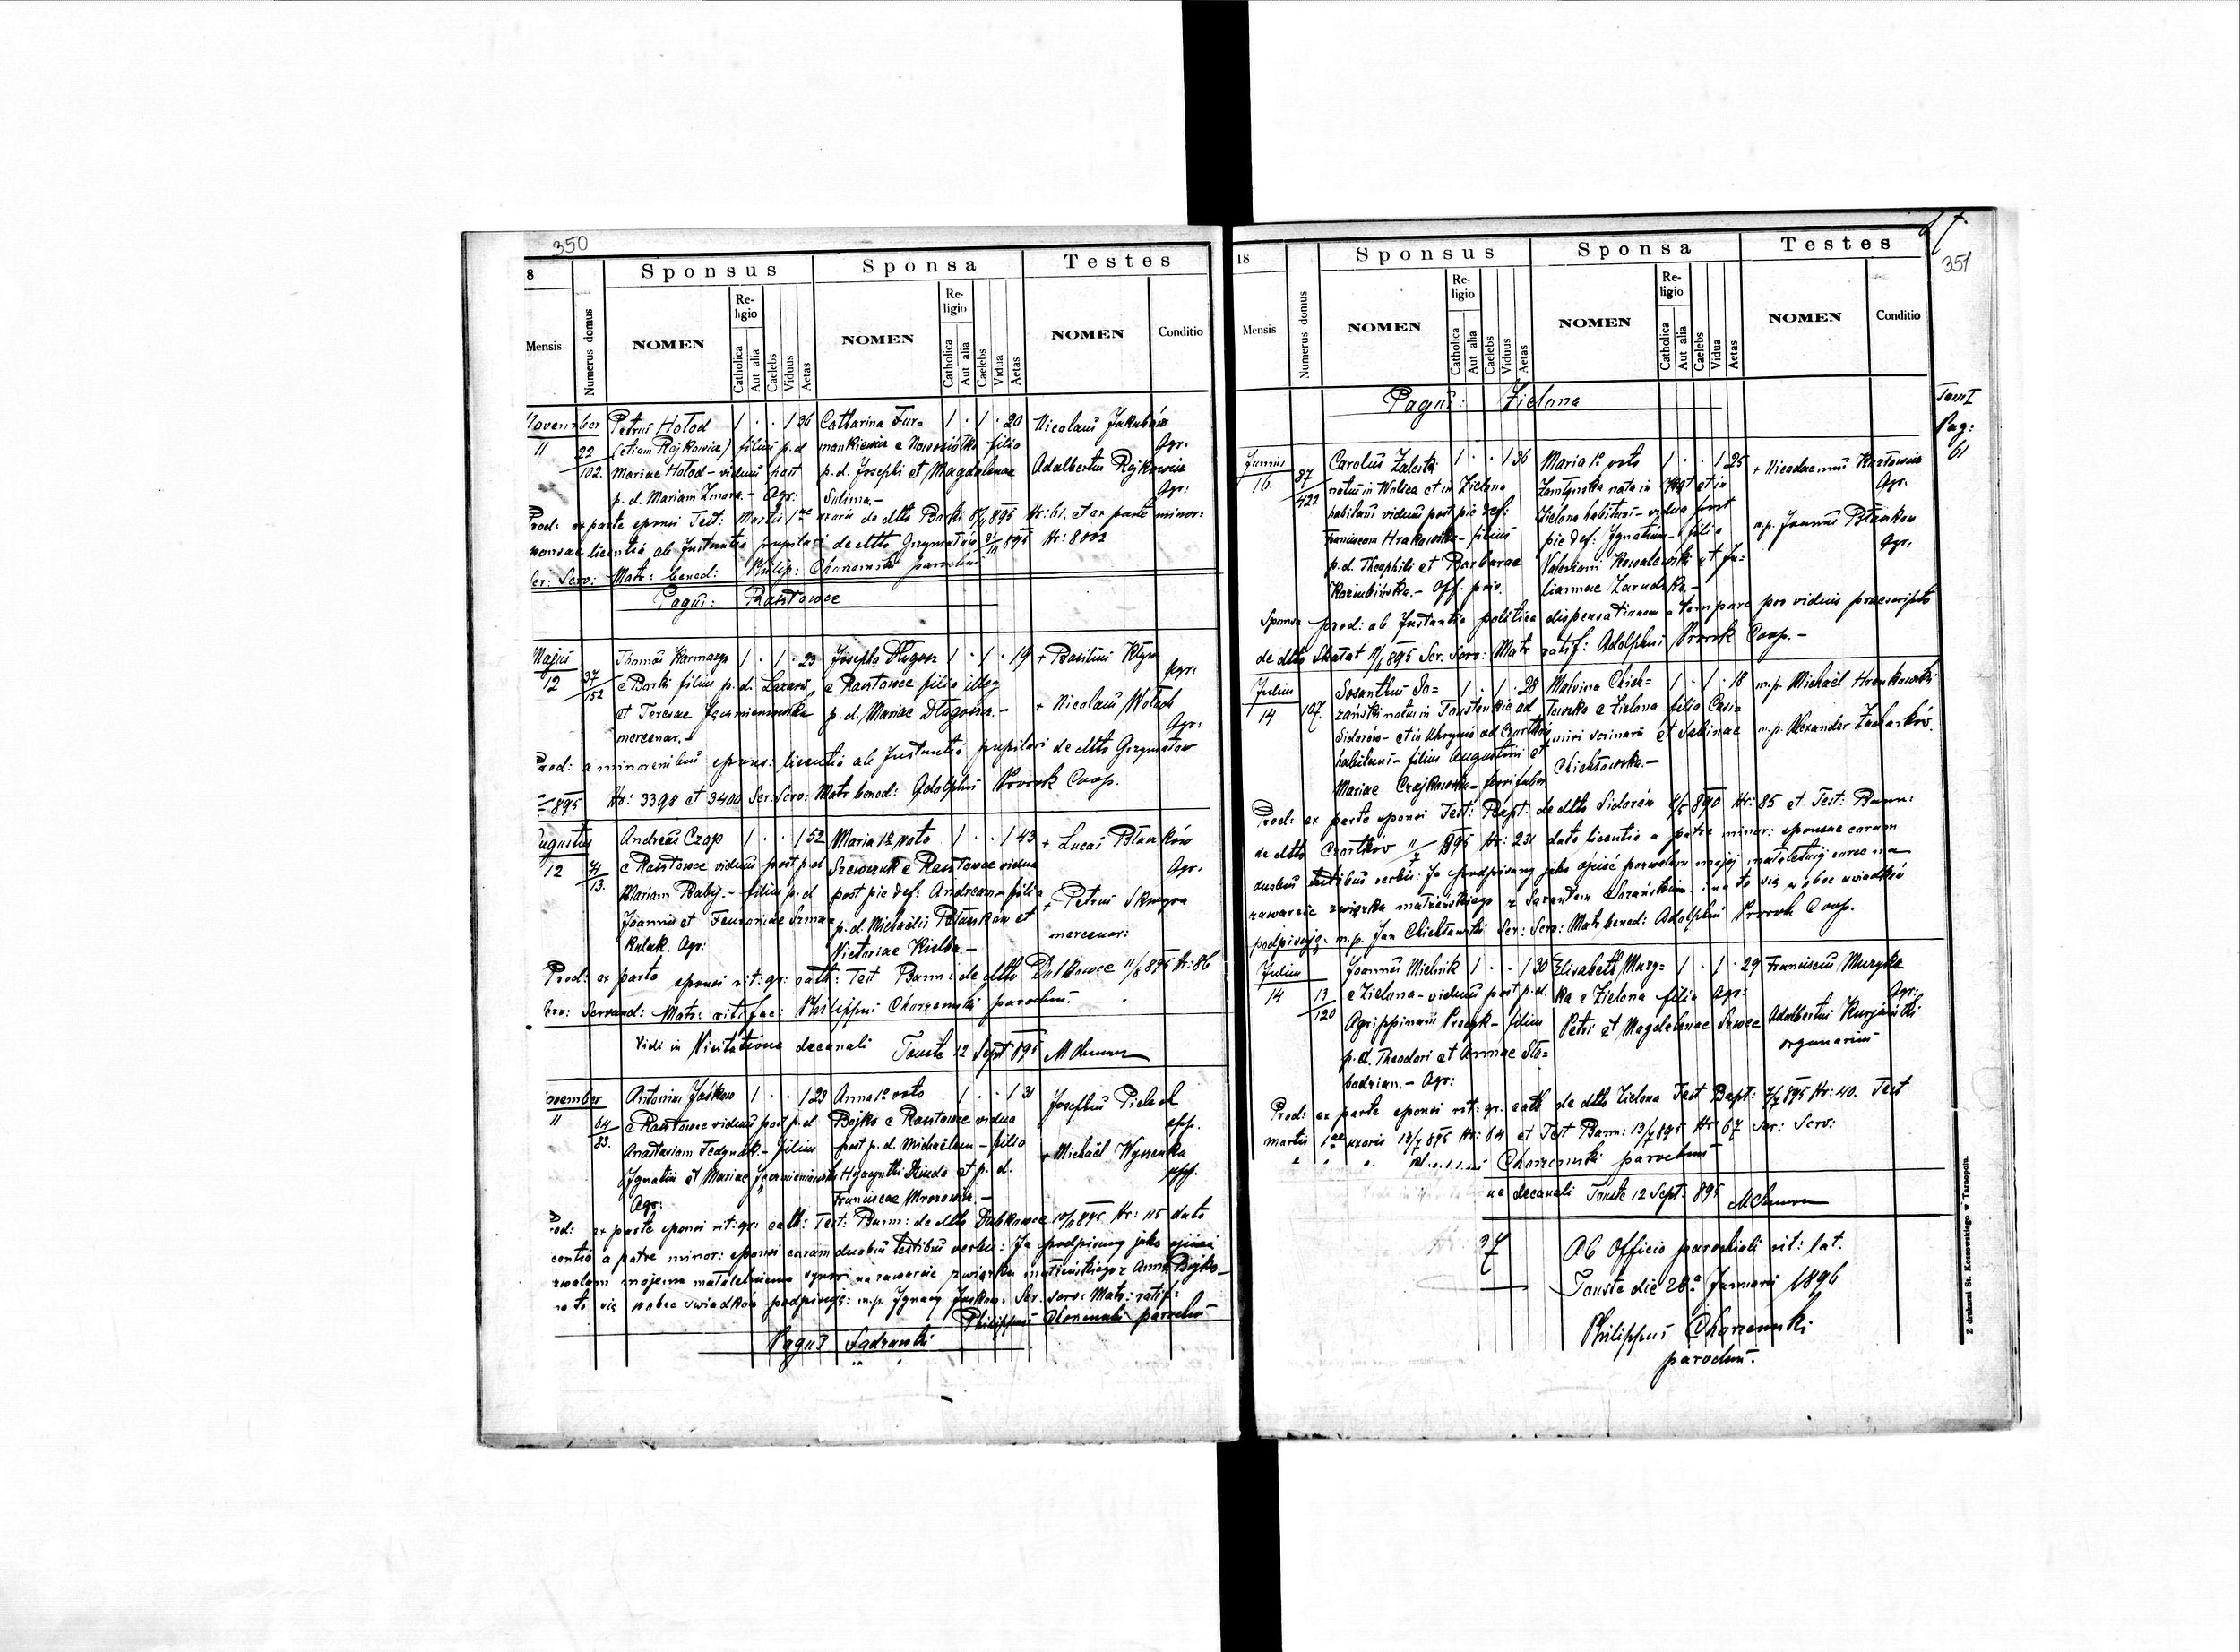 350
8 Sponsus Sponsa Testes
Mensis Numerus domus NOMEN Religio Catholica Aut alia Caelebs Viduus Aetas NOMEN Religio Catholica Aut alia Caelebs Vidua Aetas NOMEN Conditio
November Petrus Hołod 1 . . 1 36 Catharina Fur= 1 . 1 . 20 Nicolaus Jakubów
11 22 (etiam Rojkowicz) filius p.d mankiewicz e Nowosiółka filia Agr:
102. Mariae Hołod - viduus post p.d. Josephi et Magdalenae Adalbertus Rojkowicz
p.d. Mariam Zmora.- Agr: Salina.- Agr:
Prod: ex parte sponsi Test: Mortis 1ae uxoris de dtto Borki 895 Nr: 61. et ex parte minor:
sponsae licentia ab Instantia pupilari de dtto Grzymałów 895 Nr: 8002
Ser: Serv: Matr: bened: Philip: Charzewski parochus
Pagus: Rasztowce
Majus Thomas Karmazyn 1 . 1 . 23 Josepha Długosz 1 . 1 . 19 + Basilius
12 37 e Borki filius p.d. Lazari e Rasztowce filia illeg Agr:
152 et Teresae p.d. Mariae Długosz.- + Nicolaus Wołoch
mercenar.- Agr:
Prod: a minorenibus spons: licentia ab Instantia pupilari de dtto Grzymałów
895 Nr: 3398 et 3400 Ser: Serv: Matr bened: Adolphus Prorok Coop.
Augustus Andreas Czop 1 . . 1 52 Maria 1º voto 1 . . 1 43 + Lucas Błaszków
12 71 e Rasztowce viduus post p.d Szewczuk e Rasztowce vidua Agr.
13. Mariam Babij.- filius p.d post pie def: Andream - filia + Petrus Skrzypa
Joannis et p.d. Michaëlis et mercenar:
Agr: Victoriae Kiełba.-
Prod: ex parte sponsi rit: gr: cath: Test Bann: de dtto Dubkowce 11/8 895 Nr: 86
Serv: Servand: Matr: ratifac: Philippus Charzewski parochus.
Vidi in Visitatione decanali Touste 12 Sept 895
November Antonius Jaśkow 1 . . 1 23 Anna 1º voto 1 . . 1 31 Josephus
11 64 e Rasztowce viduus post p.d Bojko e Rasztowce vidua
83. Anastasiam Fedynak - filius post p.d. Michaëlem - filia + Michaël Wyszenka
Ignatii et Mariae Hyacynthi et p.d.
Agr: Franciscae Mrozowicz.-
Prod: ex parte sponsi rit: gr: cath: Test: Bann: de dtto Dubkowce 895 Nr: 115 data
licentia a patre minor: sponsi coram duobus testibus verbis: Ja podpisany jako ojciec
zwalam mojemu małoletniemu synowi na zawarcie związku małżeńskiego z Anną Bojko
na to się wobec świadków podpisuję: m.p. Ignacy Jaśkow. Ser. Serv: Matr: ratif:
Philippus Charzewski parochus
Pagus
351
18 Sponsus Sponsa Testes
Mensis Numerus domus NOMEN Religio Catholica Aut alia Caelebs Viduus Aetas NOMEN Religio Catholica Aut alia Caelebs Vidua Aetas NOMEN Conditio
Pagus: Zielona
Tom I
Pag:
61
Junius Carolus Zaleski 1 . . 1 36 Maria 1º voto 1 . . 1 25 + Nicodaemus Kozłowicz
16. 87 natus in Wolica et in Zielona nata in et in Agr.
422 habitans viduus post pie def: Zielona habitans - vidua post
Franciscam Hrakowska - filius pie def: Ignatium - filia m.p. Joannes Błaszkow
p.d. Theophili et Barbarae Valeriani Kowalewski et Ju= Agr:
Off. priv. liannae Zarudzka.-
Sponsa prod: ab Instantia politica dispensationem a tempore pro viduis praescripto
de dtto Skałat 895 Ser. Serv: Matr ratif: Adolphus Prorok Coop.-
Julius 1 . 1 . 28 Malvina Chieł= 1 . 1 . 18 m.p. Michaël
14 107. natus in Toustenkie ad e Zielona filia Casi=
Sidorów - et in ad Czortków miri et Sabinae m.p. Alexander
habitans - filius Augustini et Chiełtowska.-
Mariae Czajkowska -
Prod: ex parte sponsi Test: Bapt: de dtto Sidorów 890 Nr: 85 et Test: Bann:
de dtto Czortków 11/7 895 Nr: 231 data licentia a patre minor: sponsae coram
duobus testibus verbis: Ja podpisany jako ojciec pozwalam mojej małoletniej córce na
zawarcie związku małżeńskiego z na to się wobec świadków
podpisuję. m.p. Jan Ser: Serv: Matr bened: Adolphus Prorok Coop.
Julius Joannes Mielnik 1 . . 1 30 Elisabeth Muzy= 1 . 1 . 29 Franciscus Muzyka
14 13 e Zielona - viduus post p.d. ka e Zielona filia Agr: Agr:
120 Agrippinam - filius Petri et Magdalenae Szwec Adalbertus
p.d. Theodori et Annae Sło= organarius
bodzian.- Agr:
Prod: ex parte sponsi rit: gr. cath de dtto Zielona Test Bapt: 895 Nr: 40. Test
mortis 1ae uxoris 13/7 895 Nr: 64 et Test Bann: 13/7 895 Nr 67 Ser: Serv:
Charzewski parochus
decanali Touste 12 Sept: 895
27 Ab Officio parochiali rit: lat.
Touste die 28a Januarii 1896
Philippus Charzewski
parochus.
Z drukarni St. Kossowskiego w Tarnopolu.